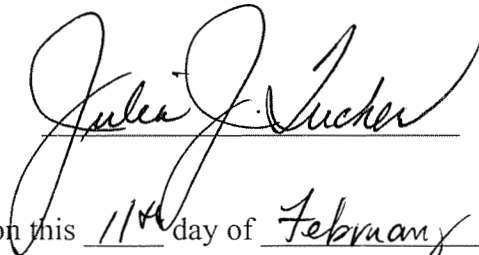 Julia J. Tucker
on this 11th day of February